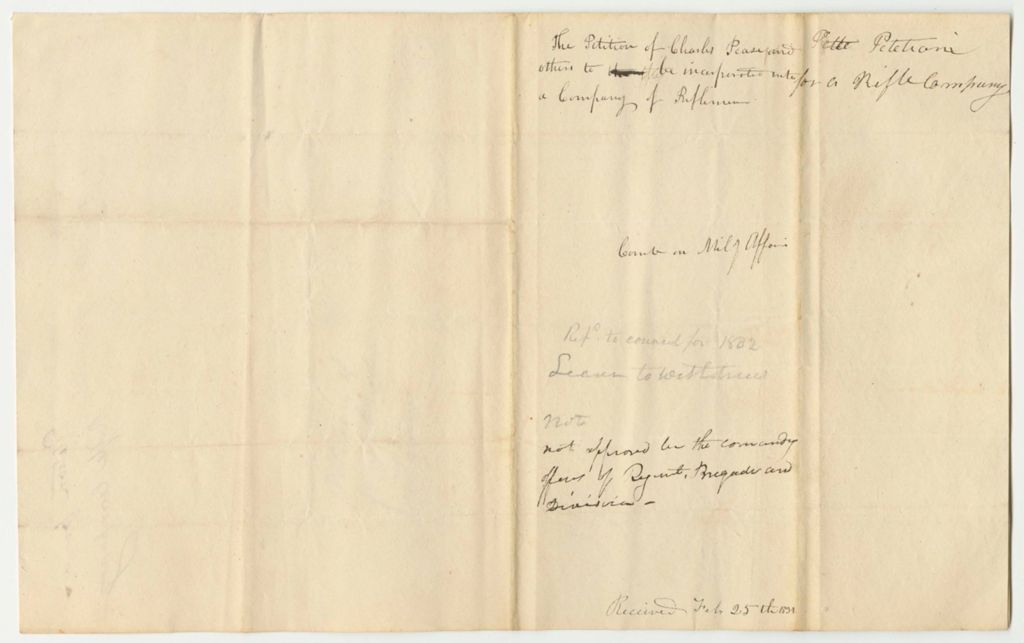 The Petition of Charles Pease and
others to be incorporated into
a Company of Riflemen
Petition
for a Rifle Company
Comte on Mily Affairs
Refd to council for 1832
Leave to withdraw
Note
not approved by the commandg
officers of Regimt, Brigade and
Division -
Received Feb 25th 1831